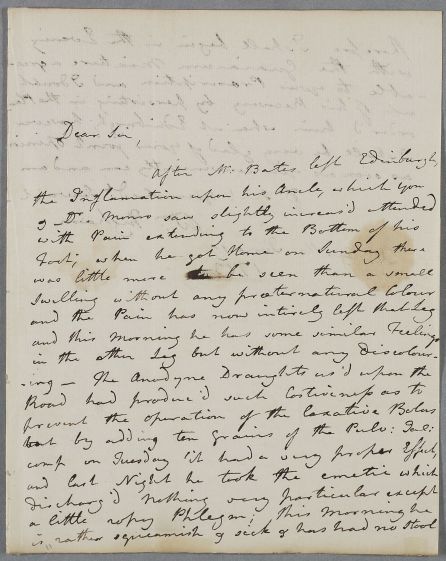 Dear Sir,
After Mr. Bates left Edinburgh,
the Inflamation upon his Ancle, which you
& Dr. Monro saw slightly increas'd attended
with Pain extending to the Bottom of his
Foot; when he got Home on Sunday there
was little more to be seen than a small
Swelling without any præternatural Colour
and the Pain has now intirely left that Leg
and this morning he has some similar Feelings
in the other Leg but without any discolour-
-ing – The Anodyne Draughts us'd upon the
Road had produc'd such Costiveness as to
prevent the operation of the Laxative Bolas
but by adding ten grains of the Pulv:
comp on Tuesday it had a very proper Effect,
and last Night he took the emetic which
discharg'd nothing very particular except
a little ropey Phlegm; this morning he
is rather squeamish & sick & has had no stool